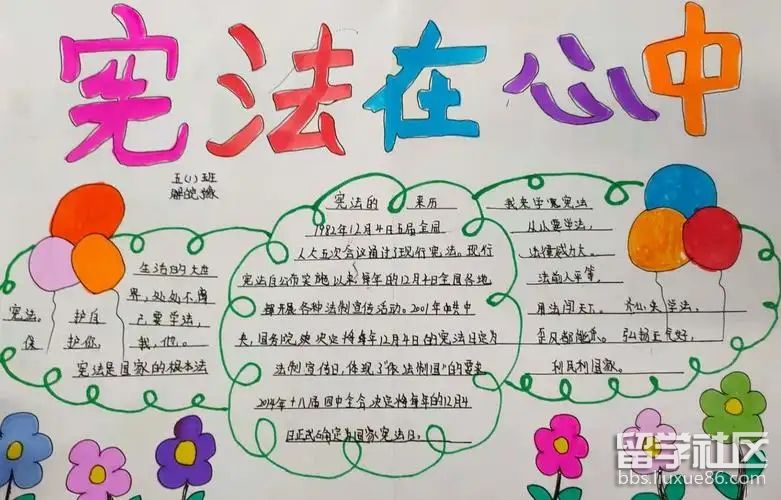 宪法在心中
五(1)班
宪法的来历
1982年12月4日五届全国
人大五次会议通过了现行宪法。现行
宪法自公布实施以来,每年的12月4日全国各地
都开展各种法制宣传活动。2001年中共中
央,国务院决定将每年12月4日的宪法日定为
法制宣传日,体现了"依法制国"的要求
2014年十八届四中全会决定将每年的12月4
日正式确定为国家宪法日。
生活的大世
界,处处不离
宪法。护自己要学法,
保护你,我,他。
宪法是国家的根本法
我来学宪法
从小要学法,
法律威力大。
法前人平等,
用法闯天下。齐心共学法,
歪风都能煞。弘扬正气好,
利民利国家。
留学社区
bbs.liuxue86.com